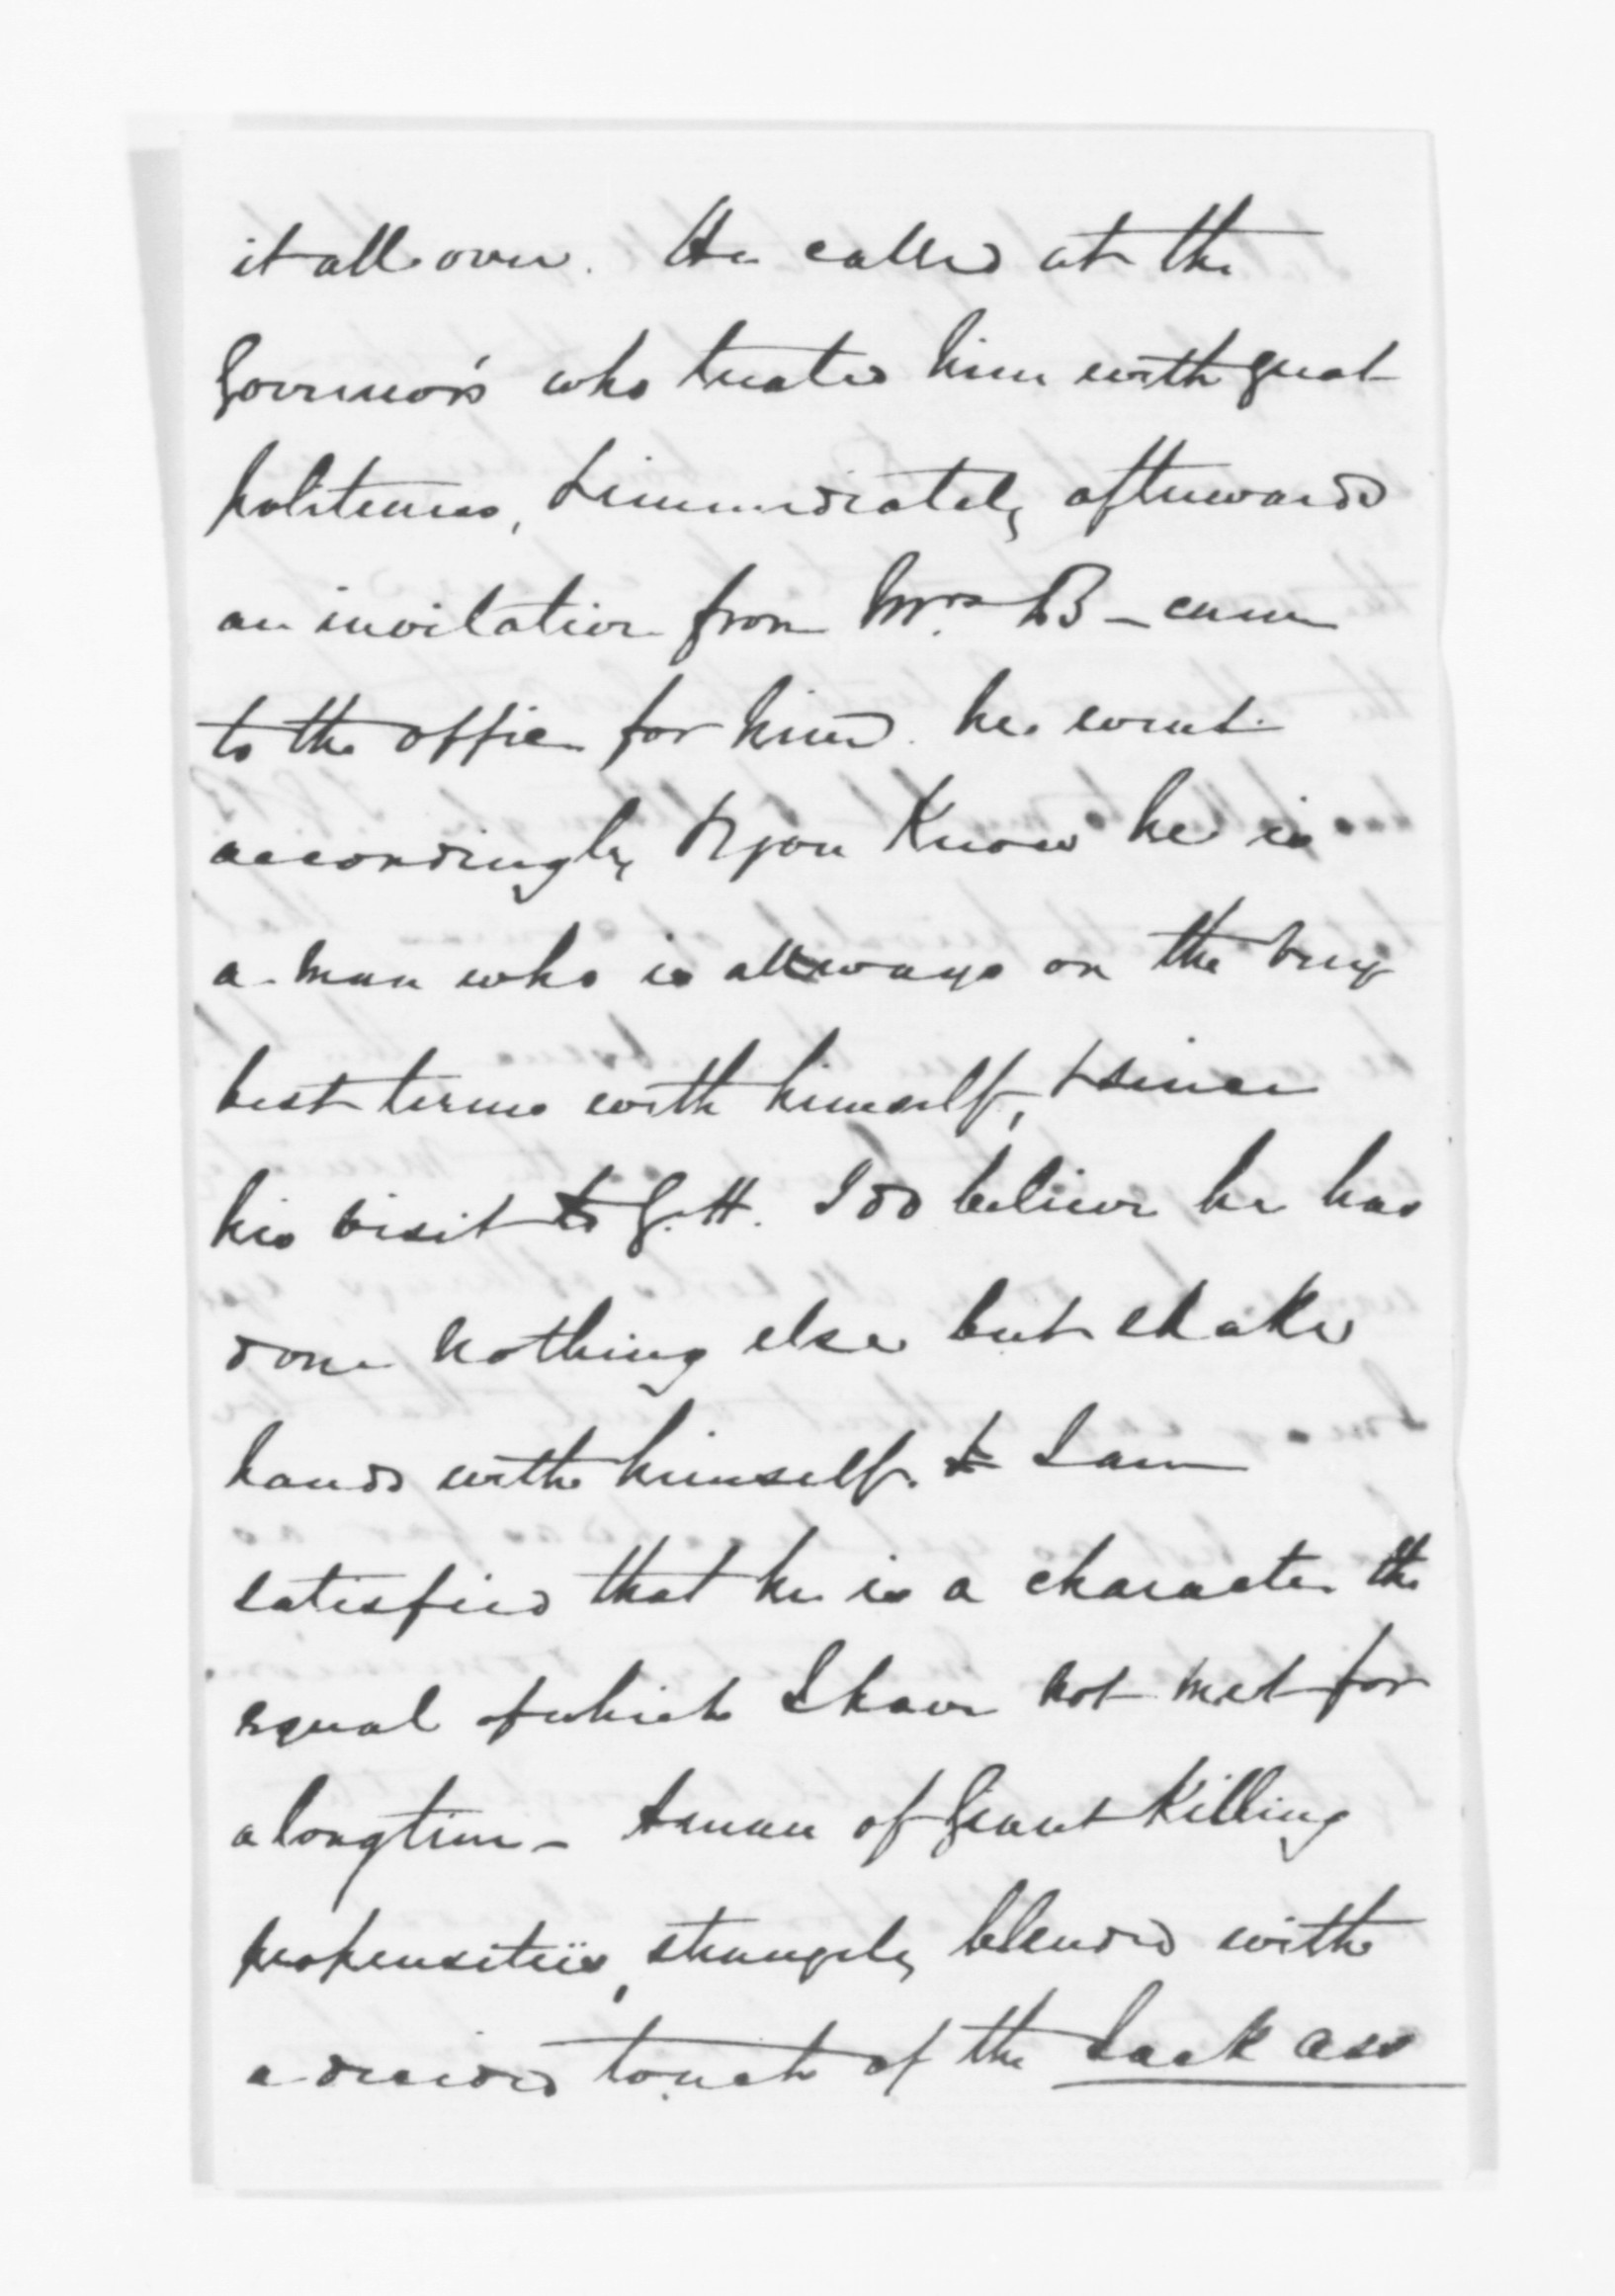 it all over. He called at the
Governor's who treated him with great
politeness, & immediately afterwards
an invitation from Mrs B— came
to the office for him. he went
accordingly & you Know he is
a man who is allways on the very
best terms with himself, & since
his visit to G. H. I do believe he has
done nothing else but shake
hands with himself. & I am
satisfied that he is a character the
equal of which I have not met for
a long time — A man of Giant Killing
propensities, strangely blended with
a decided touch of the Jack ass